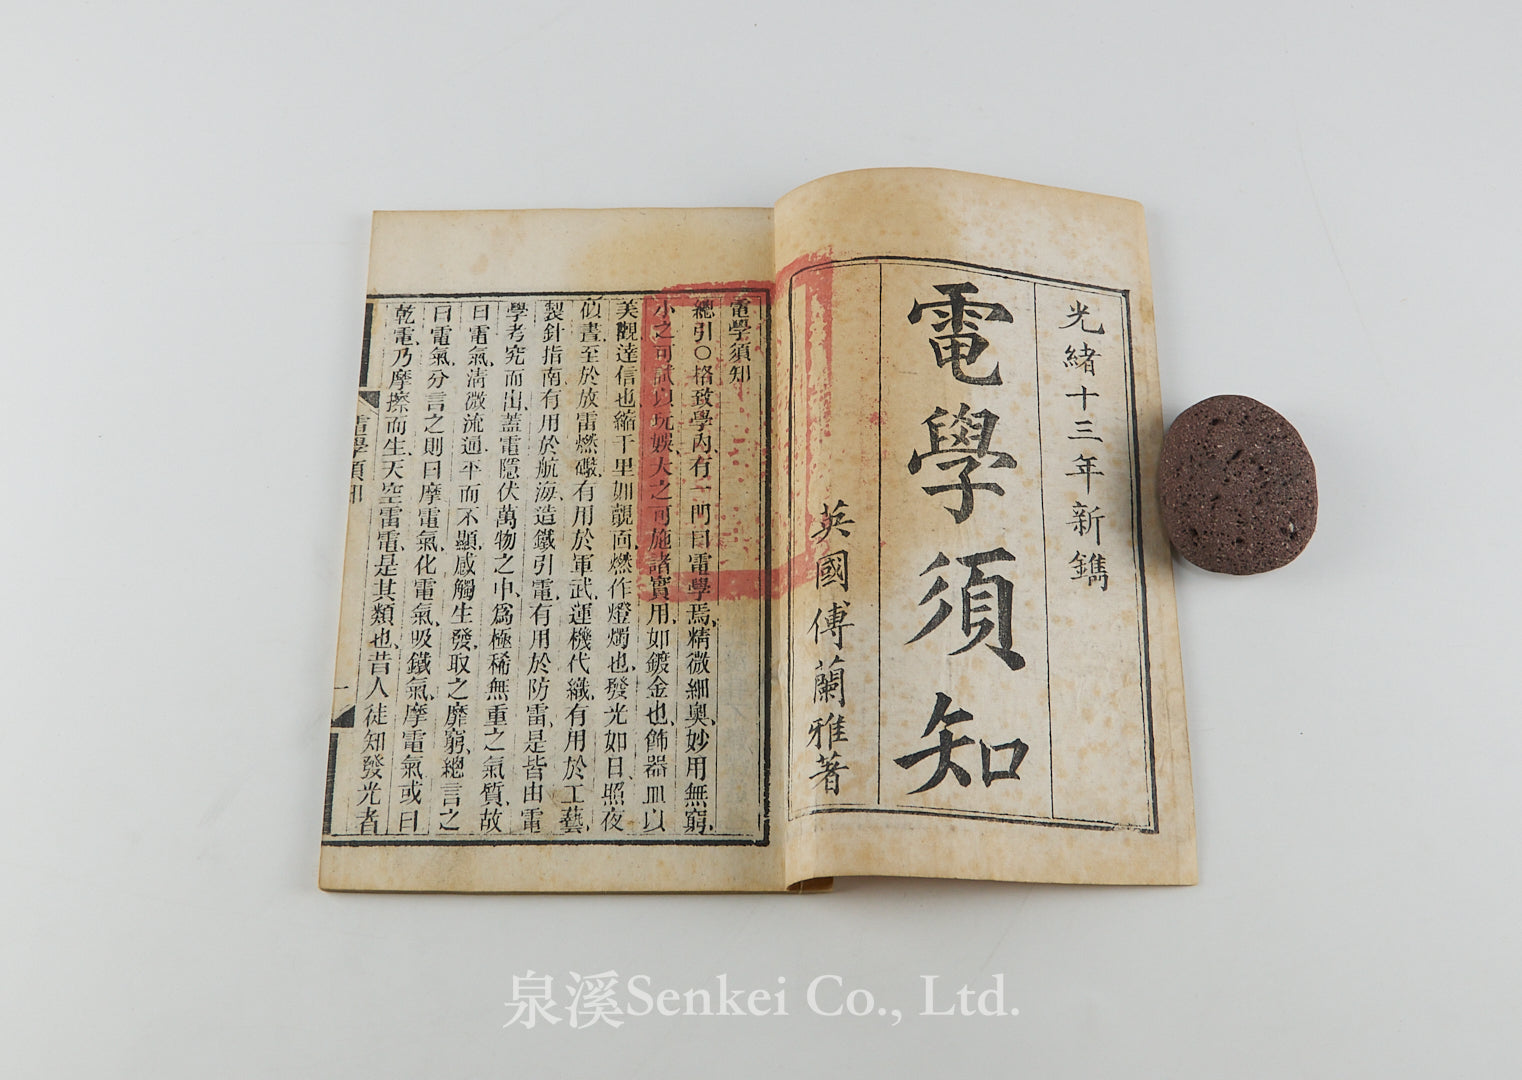 光緒十三年新鐫
電學須知
英國傅蘭雅著
電學須知
總引○格致學內有一門曰電學焉精微細奧妙用無窮
小之可試以玩娛大之可施諸實用如鍍金也飾器皿以
美觀達信也縮千里如覿面燃作燈燭也發光如日照夜
似晝至於放雷燃礮有用於軍武運機代織有用於工藝
製針指南有用於航海造鐵引電有用於防雷是皆由電
學考究而出蓋電隱伏萬物之中爲極稀無重之氣質故
曰電氣淸微流通平而不顯感觸生發取之靡窮總言之
曰電氣分言之則曰摩電氣化電氣吸鐵氣摩電氣或曰
乾電乃摩擦而生天空雷電是其類也昔人徒知發光者
電學須知
一
泉溪Senkei Co., Ltd.